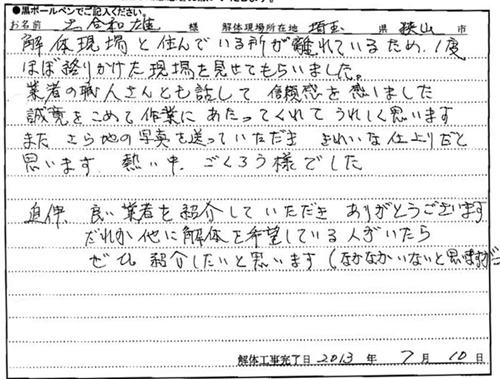 ●黒ボールペンでご記入ください。
お名前 合和雄 様 解体現場所在地 埼玉 県 狭山 市
解体現場と住んでいる所が離れているため、1度
ほぼ終りかけた現場を見せてもらいました。
業者の職人さんとも話して信頼感を感いました
誠意をこめて作業にあたってくれてうれしく思います
また さら地の写真を送っていただき きれいな仕上りだと
思います 熱い中 ごくろう様でした
追伸 良い業者を紹介していただき ありがとうございます
だれか他に解体を希望している人がいたら
ぜひ 紹介したいと思います (なかなかいないと思いますが)
解体工事完了日 2013 年 7 月 10 日